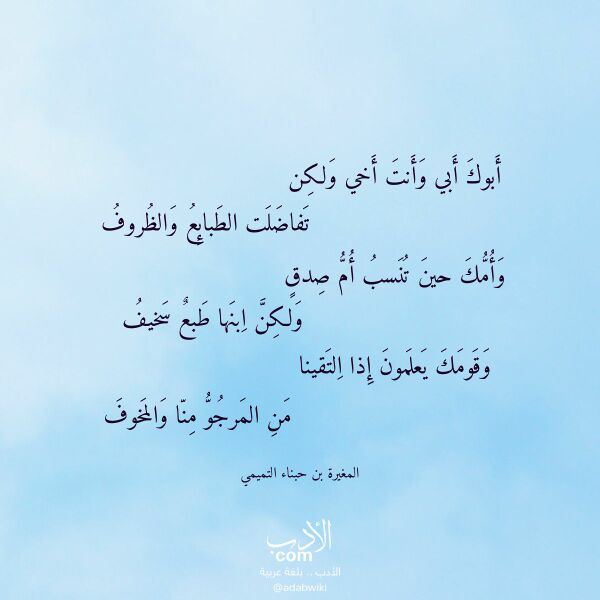 أَبوكَ أَبي وَأَنتَ أَخي وَلكِن
تَفاضَلَت الطَبائِعُ وَالظُروفُ
وَأُمُّكَ حينَ تُنَسبُ أُمُّ صِدقٍ
وَلكِنَّ اِبنَها طَبعٌ سَخيفُ
وَقَومَكَ يَعلَمونَ إِذا اِلتَقينا
مَنِ المَرجُوُّ مِنّا وَالمَخوفَ
المغيرة بن حبناء التميمي
الأدب
com
الأدب .. بلغة عربية
@adabwiki